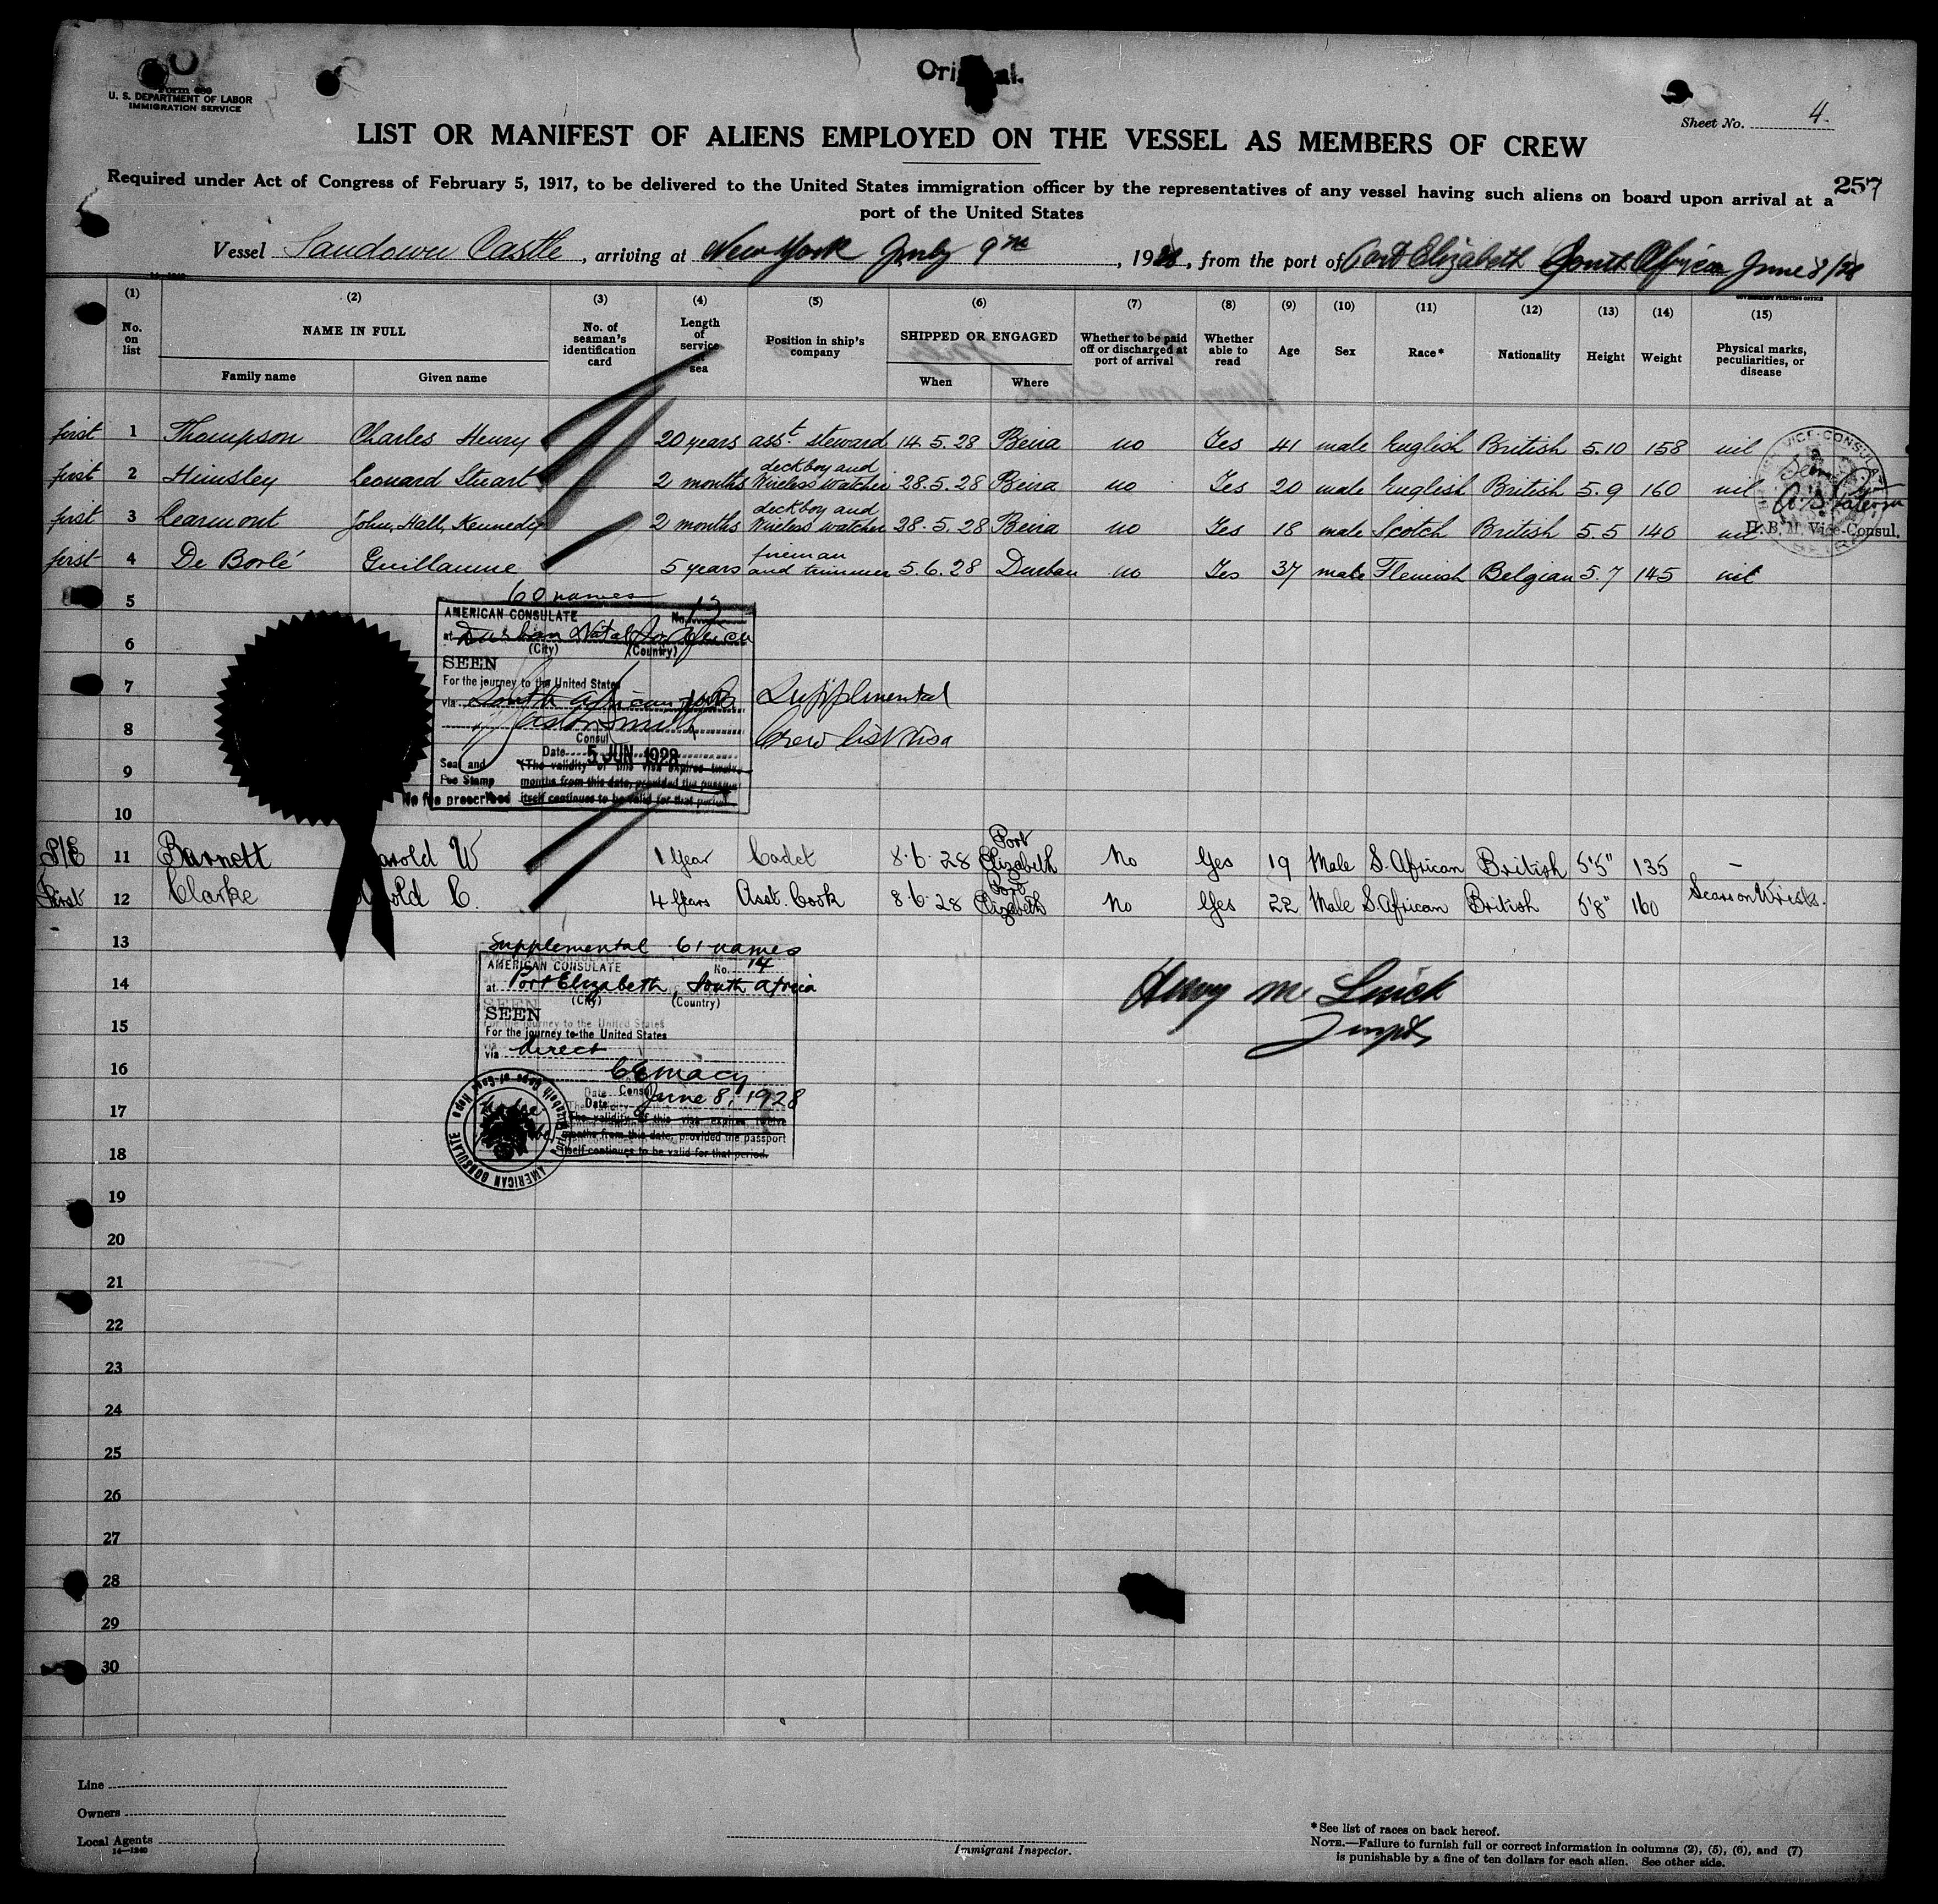 Original.
Form 689
U. S. DEPARTMENT OF LABOR
IMMIGRATION SERVICE
Sheet No. 4.
LIST OR MANIFEST OF ALIENS EMPLOYED ON THE VESSEL AS MEMBERS OF CREW
Required under Act of Congress of February 5, 1917, to be delivered to the United States immigration officer by the representatives of any vessel having such aliens on board upon arrival at a
port of the United States
257
Vessel Sandown Castle, arriving at New York July 9th, 1928, from the port of Port Elizabeth South Africa June 8/28
14-1240
GOVERNMENT PRINTING OFFICE
(1) (2) (3) (4) (5) (6) (7) (8) (9) (10) (11) (12) (13) (14) (15)
No. on list
NAME IN FULL
Family name Given name
No. of seaman's identification card
Length of service at sea
Position in ship's company
SHIPPED OR ENGAGED
When Where
Whether to be paid off or discharged at port of arrival
Whether able to read
Age
Sex
Race*
Nationality
Height
Weight
Physical marks, peculiarities, or disease
first 1 Thompson Charles Henry 20 years asst steward 14.5.28 Beira no Yes 41 male English British 5.10 158 nil
first 2 Hemsley Leonard Stuart 2 months deckboy and Wireless watcher 28.5.28 Beira no Yes 20 male English British 5.9 160 nil
first 3 Learmont John, Hall, Kennedy 2 months deckboy and Wireless watcher 28.5.28 Beira no Yes 18 male Scotch British 5.5 140 nil
first 4 De Borlé Guillaume 5 years fireman and trimmer 5.6.28 Durban no Yes 37 male Flemish Belgian 5.7 145 nil
H. B. M. Vice-Consul.
5
60 names
AMERICAN CONSULATE No. 13
at Durban Natal So Africa
(City) (Country)
6
SEEN
For the journey to the United States
7
via South African ports
Supplemental
8
Crew list visa
Consul
Date 5 JUN 1928
9
Seal and Fee Stamp
(The validity of this visa expires twelve
months from this date, provided the passport
itself continues to be valid for that period.
No fee prescribed
10
P/E 11 Barnett Harold W 1 Year Cadet 8·6·28 Port Elizabeth No Yes 19 Male S. African British 5'5" 135 –
First 12 Clarke Arnold C. 4 Years Asst. Cook 8·6·28 Port Elizabeth No Yes 22 Male S African British 5'8" 160 Scars on Wrists.
13
Supplemental 61 names
AMERICAN CONSULATE No. 14
at Port Elizabeth, South Africa
(City) (Country)
14
SEEN
15
For the journey to the United States
via direct
16
Consul
Date June 8, 1928
17
The validity of this visa expires twelve
months from this date, provided the passport
itself continues to be valid for that period.
AMERICAN CONSULATE
18
19
20
21
22
23
24
25
26
27
28
29
30
Line
Owners
Local Agents
14-1240
Immigrant Inspector.
*See list of races on back hereof.
NOTE.—Failure to furnish full or correct information in columns (2), (5), (6), and (7)
is punishable by a fine of ten dollars for each alien. See other side.